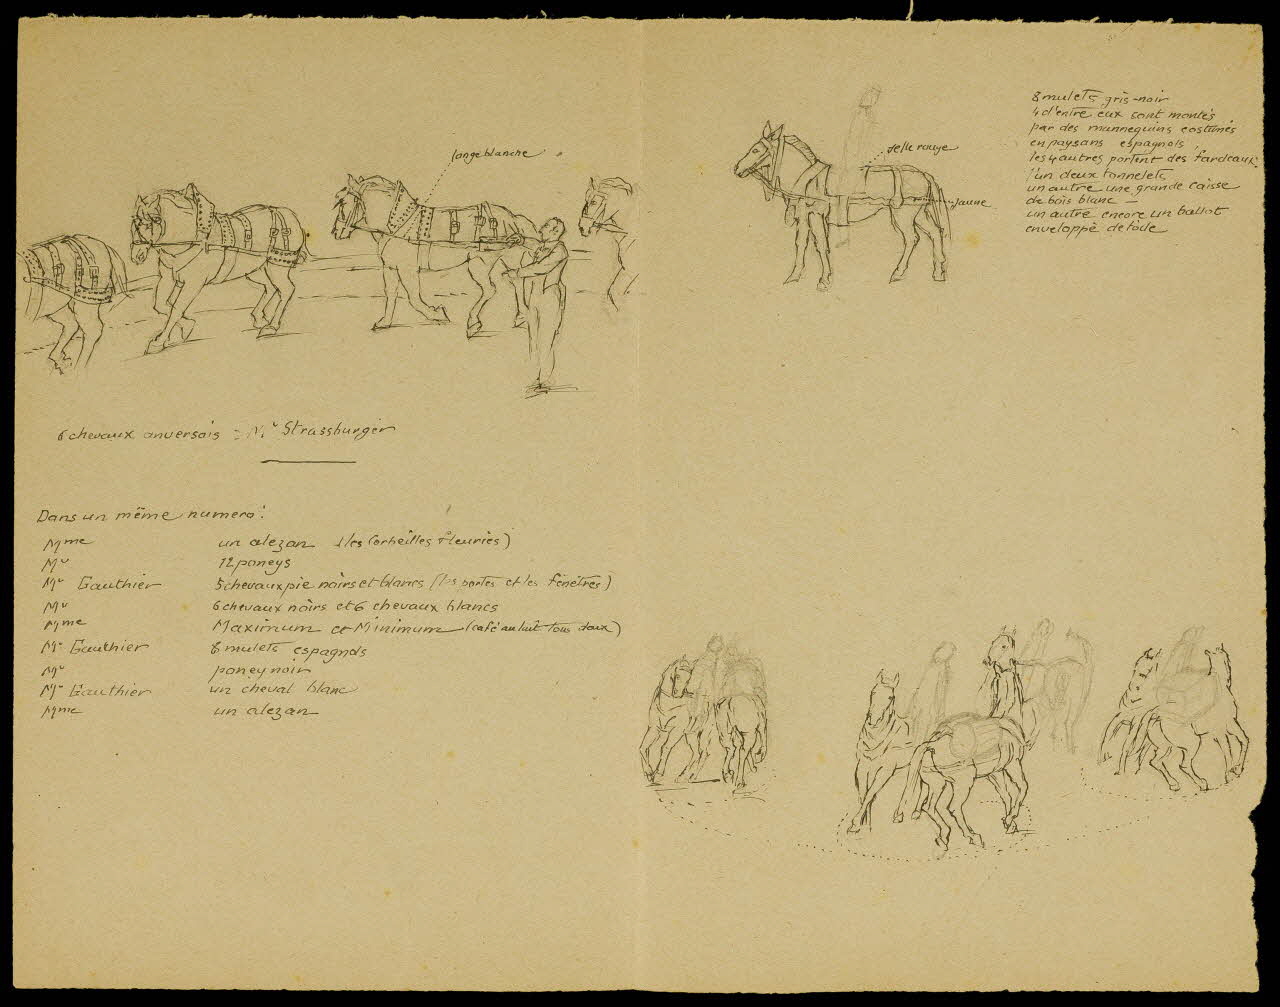 longe blanche
6 chevaux anversois = Mr Strassburger
Dans un même numero :
Mme un alezan (les Corbeilles fleuries)
Mr 12 poneys
Mr Gauthier 5 chevaux pie noirs et blancs (les portes et les fenêtres)
Mr 6 chevaux noirs et 6 chevaux blancs
Mme Maximum et Minimum (café au lait tous deux)
Mr Gauthier 8 mulets espagnols
Mr poney noir
Mr Gauthier un cheval blanc
Mme un alezan
selle rouge
jaune
8 mulets gris-noir
4 d'entre eux sont montés
par des mannequins costumés
en paysans espagnols,
les 4 autres portent des fardeaux :
l'un deux tonnelets
un autre une grande caisse
de bois blanc —
un autre encore un ballot
enveloppé de toile